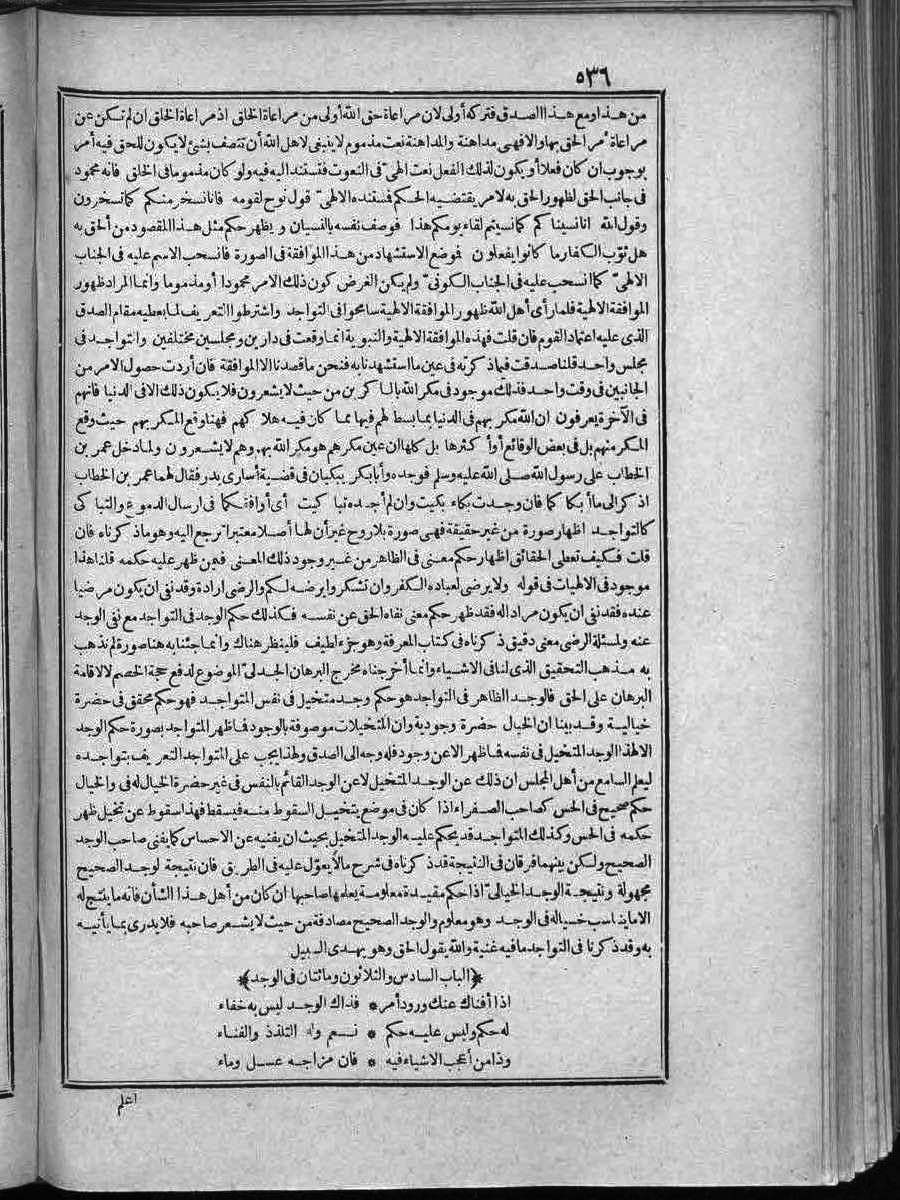 ٥٣٦
من هذا ومع هذا الصدق فتركه أولى لان مراعاة حق الله أولى من مراعاة الخلق اذ مراعاة الخلق ان لم تكن عن
مراعاة أمر الحق بها والا فهى مداهنة والمداهنة نعت مذموم لا ينبغى لاهل الله أن تتصف بشئ لا يكون للحق فيه أمر
بوجوب ان كان فعلا أو يكون لذلك الفعل نعت الهىّ فى النعوت فتستند اليه فيه ولو كان مذموما فى الخلق فانه محمود
فى جانب الحق لظهور الحق به لامر يقتضيه الحكم فستنده الالهىّ قول نوح لقومه فانا نسخر منكم كما تسخرون
وقول الله انا نسيناكم كما نسيتم لقاء يومكم هذا فوصف نفسه بالنسيان و يظهر حكم مثل هذا المقصود من ألحق به
هل ثوّب الكفار ما كانوا يفعلون فوضع الاستشهاد من هذا الموافقة فى الصورة فانسحب الاسم عليه فى الجناب
الالهىّ كما انسحب عليه فى الجناب الكونىّ ولم يكن الغرض كون ذلك الامر محمودا أو مذموما وانما المراد ظهور
الموافقة الالهية فلما رأى أهل الله ظهور الموافقة الالهية سامحوا فى التواجد واشترطوا التعريف لما يعطيه مقام الصدق
الذى عليه اعتماد القوم فان قلت فهذه الموافقة الالهية والنبوية انما وقعت فى دارين ومجلسين مختلفين والتواجد فى
مجلس واحد قلنا صدقت فما ذكرته فى عين ما استشهدنا به فنحن ما قصدنا الا الموافقة فان أردت حصول الامر من
الجانبين فى وقت واحد فذلك موجود فى مكر الله بالماكرين من حيث لا يشعرون فلا يكون ذلك الا فى الدنيا فانهم
فى الآخرة يعرفون ان الله مكر بهم فى الدنيا بما بسط لهم فيها مما كان فيه هلاكهم فهنا وقع المكر بهم حيث وقع
المكر منهم بل فى بعض الوقائع أو أكثرها بل كلها ان عين مكرهم هو مكر الله بهم وهم لا يشعرون ولما دخل عمر بن
الخطاب على رسول الله صلى الله عليه وسلم فوجده وأبا بكر يبكيان فى قضية أسارى بدر فقال لهما عمر بن الخطاب
اذكرا لى ما أبكاكما فان وجدت بكاء بكيت وان لم أجده تباكيت أى أوافقكما فى ارسال الدموع والتباكى
كالتواجد اظهار صورة من غير حقيقة فهى صورة بلا روح غير أن لها أصلا معتبرا ترجع اليه وهو ما ذكرناه فان
قلت فكيف تعطى الحقائق اظهار حكم معنى فى الظاهر من غير وجود ذلك المعنى فمن ظهر عليه حكمه قلنا هذا
موجود فى الالهيات فى قوله ولا يرضى لعباده الكفر وان تشكروا يرضه لكم والرضى ارادة وقد نفى ان يكون مرضيا
عنده فقد نفى ان يكون مرادا له فقد ظهر حكم معنى نفاه الحق عن نفسه فكذلك حكم الوجد فى التواجد مع نفى الوجد
عنه ولمسئلة الرضى معنى دقيق ذكرناه فى كتاب المعرفة وهو جزء لطيف فلينظر هناك وانما جئنا به هنا صورة لم نذهب
به مذهب التحقيق الذى لنا فى الاشياء وانما أخرجناه مخرج البرهان الجدلىّ الموضوع لدفع حجة الخصم لا لاقامة
البرهان على الحق فالوجد الظاهر فى التواجد هو حكم وجد متخيل فى نفس المتواجد فهو حكم محقق فى حضرة
خيالية وقد بينا ان الخيال حضرة وجودية وان المتخيلات موصوفة بالوجود فما ظهر المتواجد بصورة حكم الوجد
الا لهذا الوجد المتخيل فى نفسه فما ظهر الا عن وجود فله وجه الى الصدق ولهذا يجب على المتواجد التعريف بتواجده
ليعلم السامع من أهل المجلس ان ذلك عن الوجد المتخيل لا عن الوجد القائم بالنفس فى غير حضرة الخيال له فى والخيال
حكم صحيح فى الحس كصاحب الصفراء اذا كان فى موضع يتخيل السقوط منه فيسقط فهذا سقوط عن تخيل ظهر
حكمه فى الحس وكذلك المتواجد قد يحكم عليه الوجد المتخيل بحيث ان يفنيه عن الاحساس كما يفنى صاحب الوجد
الصحيح ولكن بينهما فرقان فى النتيجة قد ذكرناه فى شرح ما لا يعوّل عليه فى الطريق فان نتيجة لوجد الصحيح
مجهولة ونتيجة الوجد الخيالىّ اذا حكم مقيدة معلومة يعلمها صاحبها ان كان من أهل هذا الشأن فانه ما ينتج له
الا ما يناسب خياله فى الوجد وهو معلوم والوجد الصحيح مصادفة من حيث لا يشعر صاحبه فلا يدرى بما يأتيه
به وقد ذكرنا فى التواجد ما فيه غنية والله يقول الحق وهو يهدى السبيل
﴿الباب السادس والثلاثون ومائتان فى الوجد﴾
اذا أفناك عنك ورود أمر * فذاك الوجد ليس به خفاء
له حكم وليس عليه حكم * نعم وله التلذذ والفناء
وذا من أعجب الاشياء فيه * فان مزاجه عسل وماء
اعلم